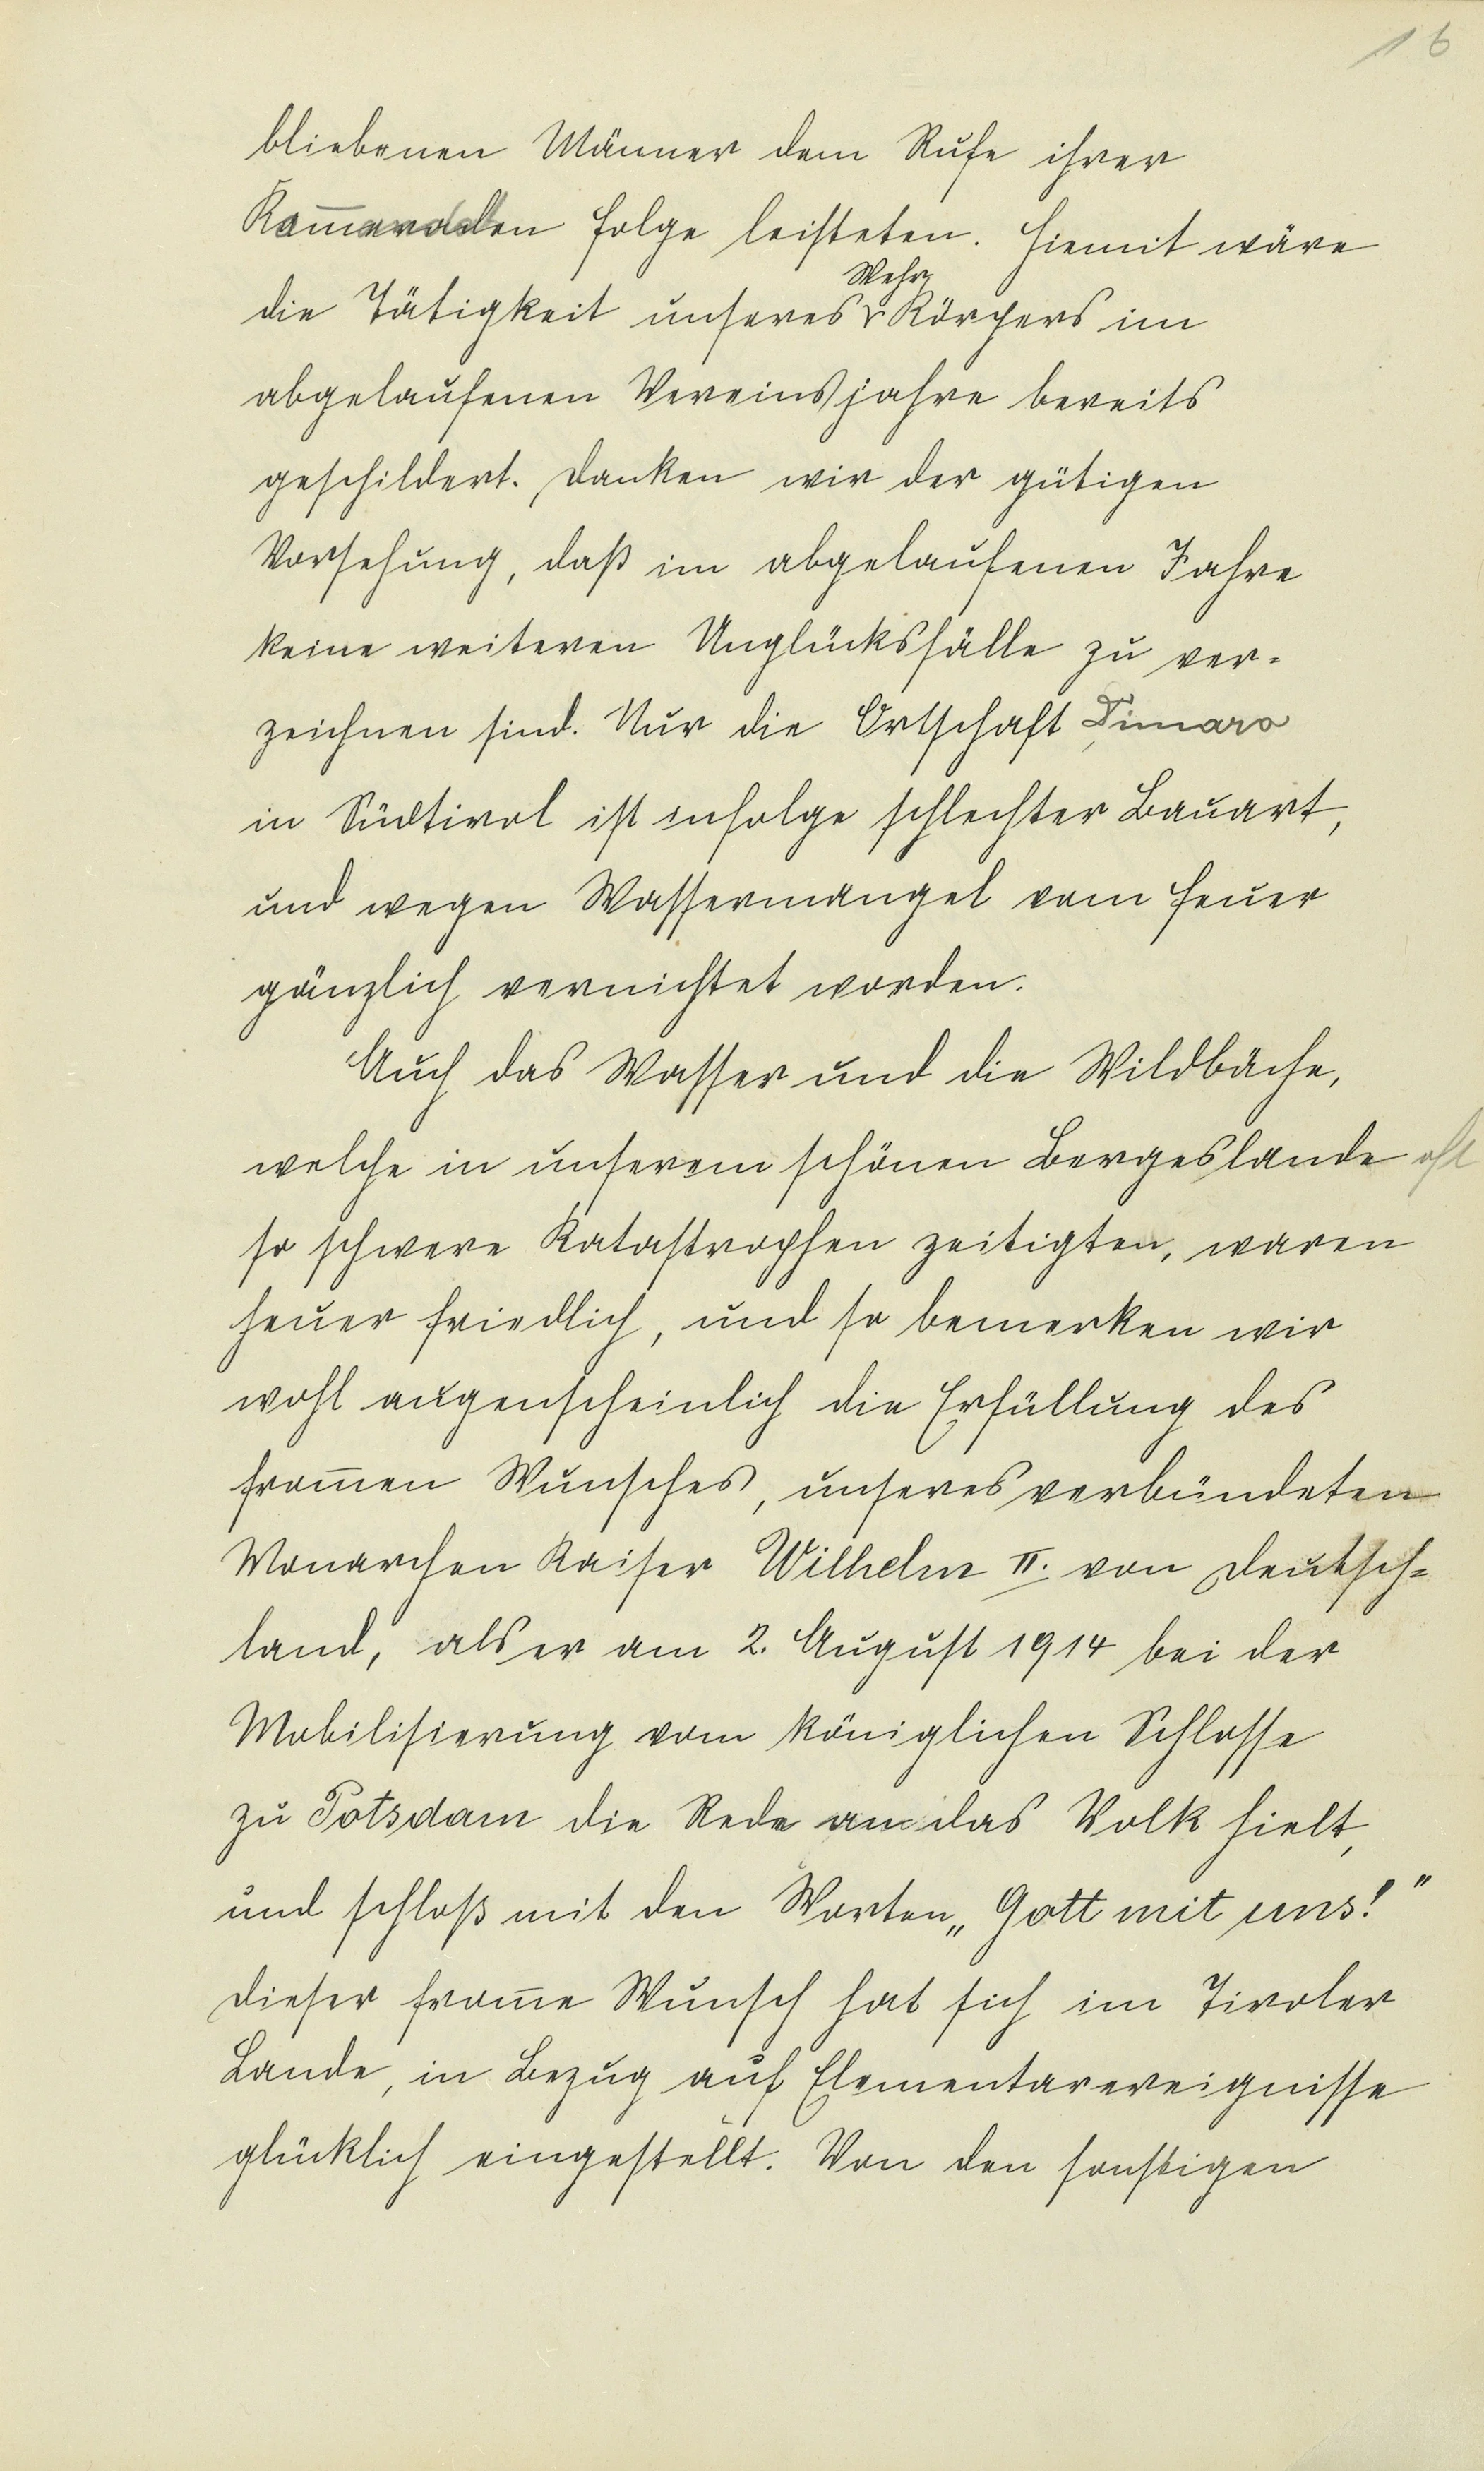 16
bliebenen Männer dem Rufe ihrer
Kom̄andden folge leisteten. Hiemit wäre
die Tätigkeit unseres Wehr Körpers im
abgelaufenen Vereinsjahre bereits
geschildert. Danken wir der gütigen
Vorsehung, daß im abgelaufenen Jahre
keine weiteren Unglücksfälle zu ver-
zeichnen sind. Nur die Ortschaft Dimaro
in Südtirol ist infolge schlechter Bauart,
und wegen Wassermangel vom Feuer
gänzlich vernichtet worden.
Auch das Wasser und die Wildbäche,
welche in unserem schönen Bergeslande oft
so schwere Katastrophen zeitigten, waren
heuer friedlich, und so bemerken wir
wohl augenscheinlich die Erfüllung des
from̄en Wunsches, unseres verbündeten
Monarchen Kaiser Wilhelm II. von Deutsch=
land, als er am 2. August 1914 bei der
Mobilisierung vom königlichen Schlosse
zu Potsdam die Rede an das Volk hielt,
und schloß mit den Worten „Gott mit uns!"
Dieser from̄e Wunsch hat sich im Tiroler
Lande, in Bezug auf Elementarereignisse
glücklich eingestellt. Von den sonstigen